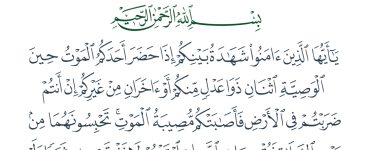 بِسْمِ ٱللَّهِ ٱلرَّحْمَٰنِ ٱلرَّحِيمِ
يَـٰٓأَيُّهَا ٱلَّذِينَ ءَامَنُوا۟ شَهَـٰدَةُ بَيْنِكُمْ إِذَا حَضَرَ أَحَدَكُمُ ٱلْمَوْتُ حِينَ
ٱلْوَصِيَّةِ ٱثْنَانِ ذَوَا عَدْلٍ مِّنكُمْ أَوْ ءَاخَرَانِ مِنْ غَيْرِكُمْ إِنْ أَنتُمْ
ضَرَبْتُمْ فِى ٱلْأَرْضِ فَأَصَـٰبَتْكُم مُّصِيبَةُ ٱلْمَوْتِ ۚ تَحْبِسُونَهُمَا مِنۢ